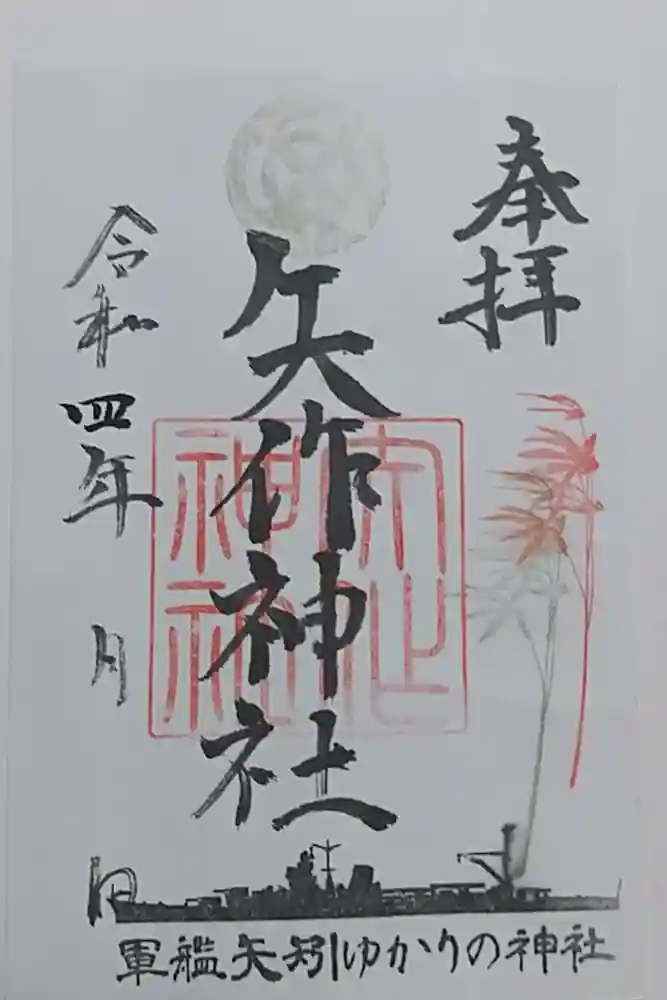 奉拝
矢作神社
矢作神社
令和四年 月 日
軍艦矢矧ゆかりの神社